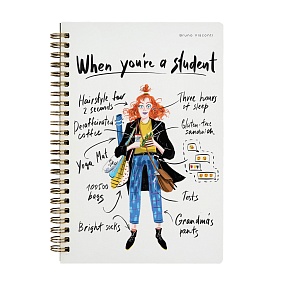 Bruno Visconti
When you're a student
Hairstyle for
2 seconds
Three hours
of sleep
Decaffeinated
coffee
Gluten-free
sandwich
Yoga Mat
100500
bags
Tests
Bright socks
Grandma's
pants